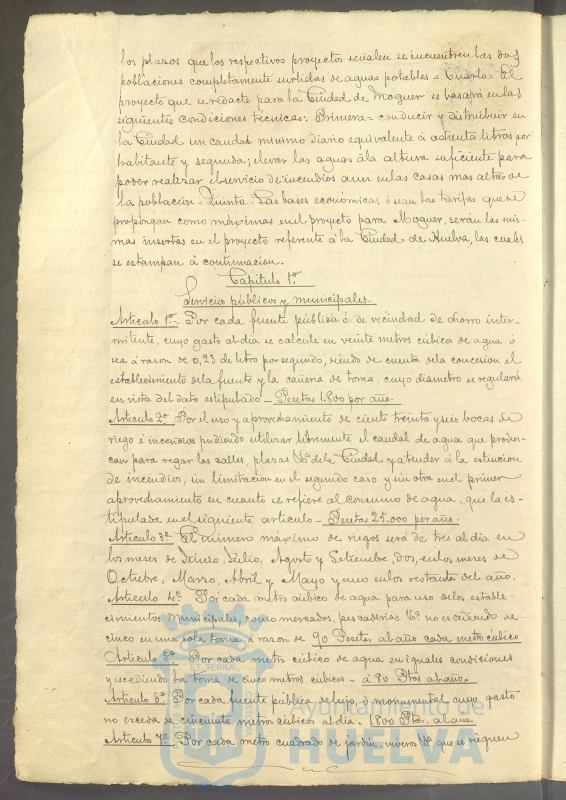 los plazos que los respectivos proyectos señalen se encuentren las dos
poblaciones completamente surtidas de aguas potables = Cuarto = El
proyecto que se redacte para la Ciudad de Moguer se basará en las
siguientes condiciones técnicas: Primera = conducir y distribuir en
la Ciudad un caudal mínimo diario equivalente á ochenta litros por
habitante y segunda; elevar las aguas á la altura suficiente para
poder realizar el servicio de incendios aun en las casas mas altas de
la poblacion = Quinta = Las bases económicas ó sean las tarifas que se
propongan como máximas en el proyecto para Moguer, serán las mis-
mas insertas en el proyecto referente á la Ciudad de Huelva, las cuales
se estampan á continuacion.
Capitulo 1º
Servicios públicos y municipales.
Articulo 1º - Por cada fuente pública ó de vecindad de chorro inter-
mitente, cuyo gasto al dia se calcule en veinte metros cúbicos de agua ó
sea á razon de 0,23 de litro por segundo, siendo de cuenta de la concesion el
establecimiento de la fuente y la cañeria de toma, cuyo diametro se regulará
en vista del dato estipulado - Pesetas 1.800 por año.
Articulo 2º Por el uso y aprovechamiento de ciento treinta y seis bocas de
riego é incendios pudiendo utilizar libremente el caudal de agua que produz-
can para regar las calles, plazas &ª de la Ciudad y atender á la estincion
de incendios, sin limitacion en el segundo caso y sin otra en el primer
aprovechamiento en cuanto se refiere al consumo de agua, que la es-
tipulada en el siguiente articulo - Pesetas 25.000 por año.
Articulo 3º El número máximo de riegos será de tres al dia en
los meses de Junio, Julio, Agosto y Setiembre, dos, en los meses de
Octubre, Marzo, Abril y Mayo y uno en los restantes del año.
Articulo 4º Por cada metro cúbico de agua para uso de los estable-
cimientos municipales, como mercados, pescaderias &ª no escediendo de
cinco en una sola toma á razon de 90 Pesetas al año cada metro cúbico
Articulo 5º Por cada metro cúbico de agua en iguales condiciones
y escediendo la toma de cinco metros cubicos - á 80 Ptas al año.
Articulo 6º Por cada fuente pública de lujo ó monumental cuyo gasto
no esceda de cincuenta metros cúbicos al dia. 1800 Ptas. al año.
Articulo 7º Por cada metro cuadrado de jardin, viveros &ª que se rieguen
Ayuntamiento de
HUELVA